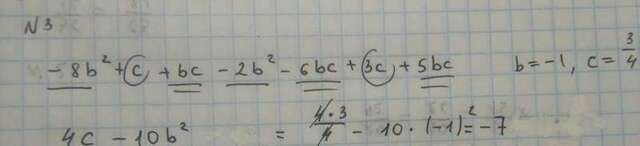 N 3
-8b² + c + bc - 2b² - 6bc + 3c + 5bc b = -1, c = 3/4
4c - 10b² = 4·3/4 - 10·(-1)² = -7